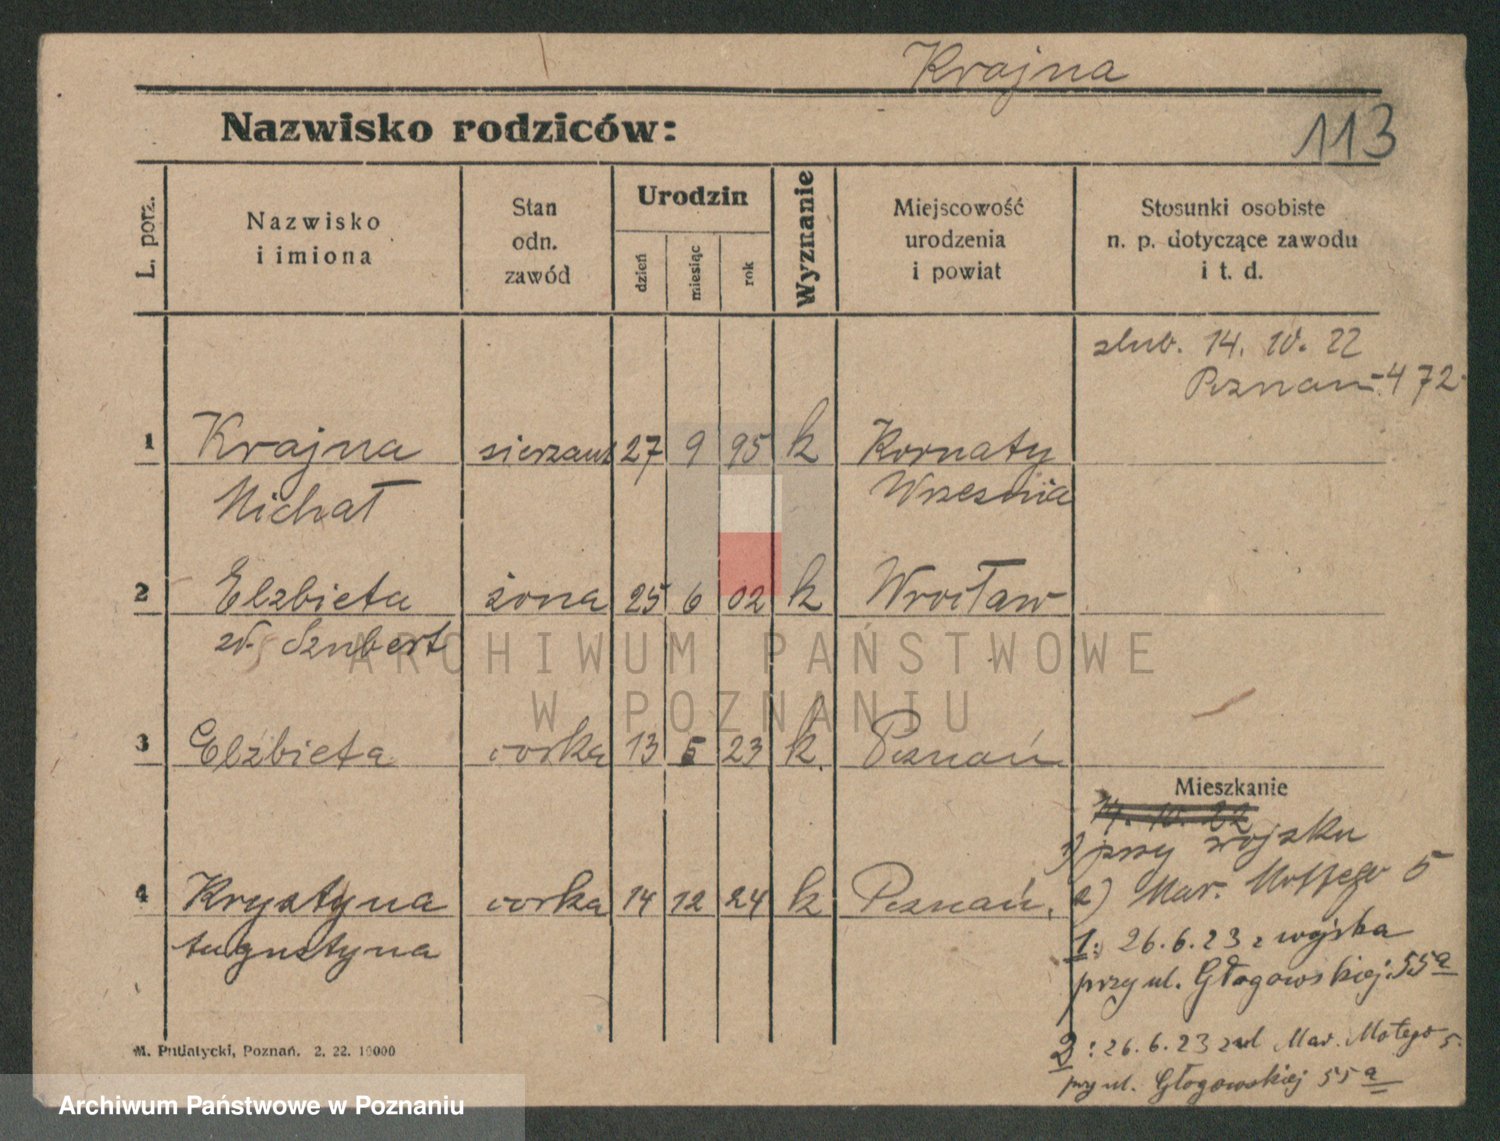 Krajna
Nazwisko rodziców:
113
L. porz.
Nazwisko
i imiona
Stan
odn.
zawód
Urodzin
dzień
miesiąc
rok
Wyznanie
Miejscowość
urodzenia
i powiat
Stosunki osobiste
n. p. dotyczące zawodu
i t. d.
slub. 14. 10. 22
Poznań 472
1 Krajna sierzant 27 9 95 k Kornaty
Michał Wrzesnia
2 Elzbieta żona 25 6 02 k Wrocław
zd. Sznbert
ARCHIWUM PAŃSTWOWE
W POZNANIU
3 Elżbieta corka 13 5 23 k Poznań
Mieszkanie
14. 10. 22
1) przy wojsku
4 Krystyna corka 14 12 24 k Poznań.
2) Mar. 5
Augustyna
1: 26.6.23 z wojska
przy ul. Głogowskiej 55a
2: 26.6.23 z ul Mar. Motego 5.
przy ul. Głogowskiej 55a
M. Putiatycki, Poznań. 2. 22. 10000
Archiwum Państwowe w Poznaniu